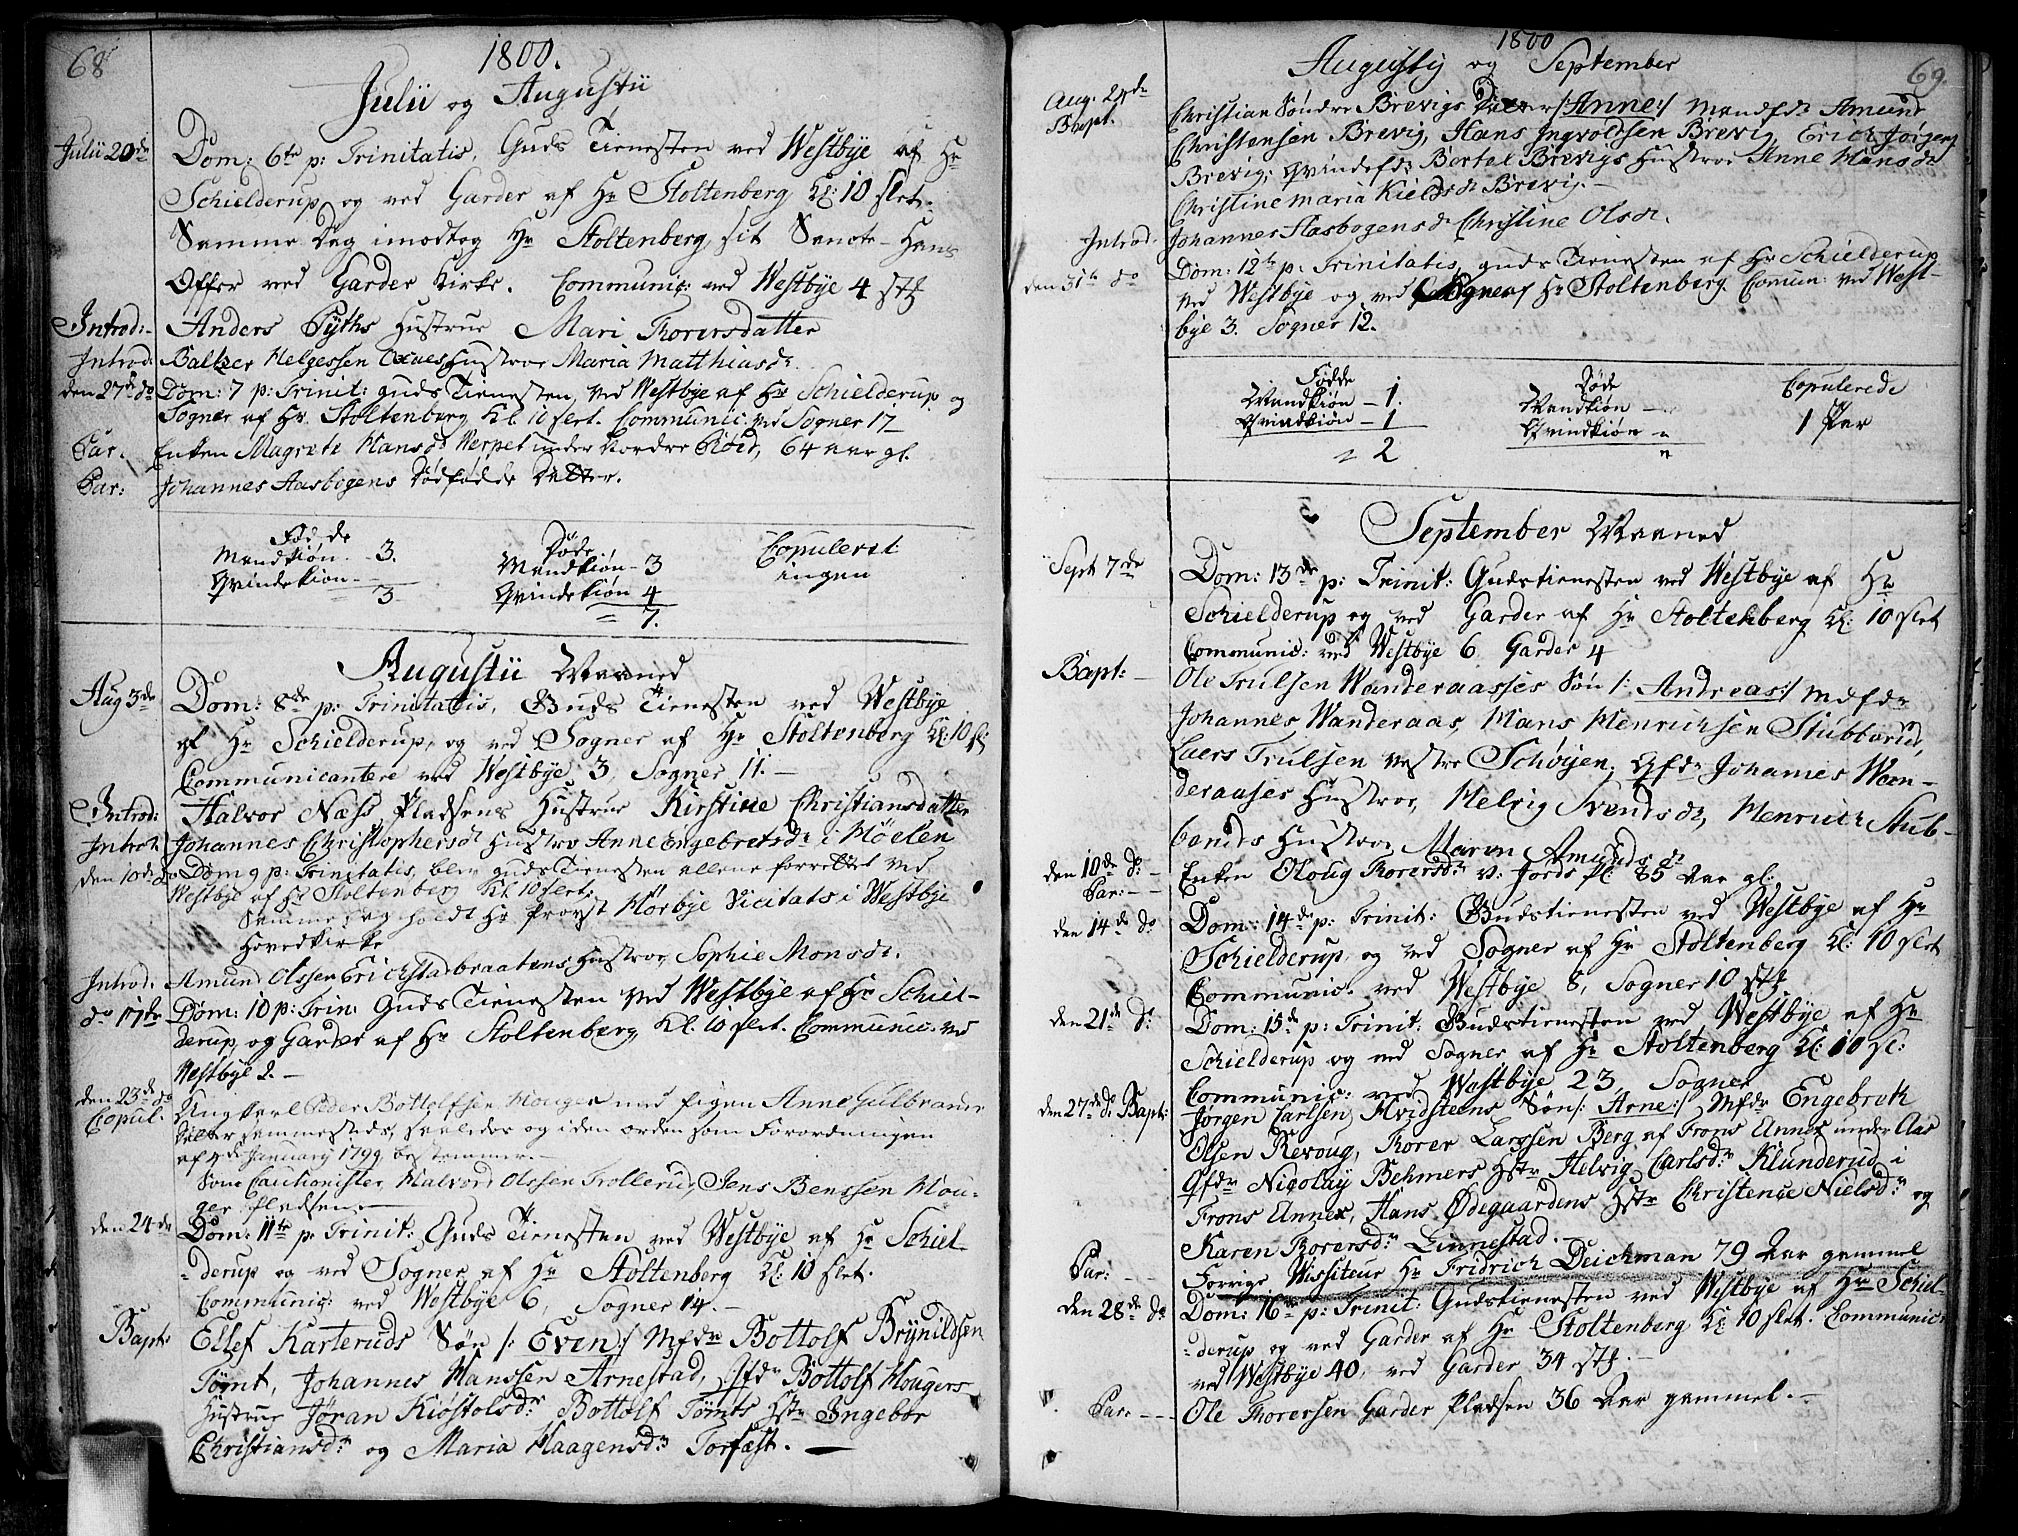 68
1800.
Julii og Augustii
Julii 20de Dom: 6te p: Trinitatis, Guds Tienesten ved Westbye af Hr
Schielderup og ved Garder af Hr Stoltenberg Kl: 10 slet.
Samme Dag imodtog Hr Stoltenberg, sit Senote-Hans
Offer ved Garder Kirke. Communic: ved Westbye 4 stk
Introd:- Anders Pyths Hustrue Mari Thorersdatter
Introd: Baltzer Helgessen Hustroe Maria Matthiasdr.
den 27de do Dom: 7 p: Trinit: guds Tienesten, ved Westbye af Hr Schielderup og
Sogner af Hr. Stoltenberg Kl. 10 slet. Communic: ved Sogner 17
Par. Enken Magrete Hansdr Werpet under Nordre Röed, 64 aar gl.
Par: Johannes Aasbogens Dödfödde Datter.
Födde Döde Copuleret
Mandkiön - 3. Mandkiön - 3 ingen
Qvindekiön - Qvindekiön 4
3 7.
Augustii Maaned
Aug 3de Dom: 8de p: Trinitatis, Guds Tienesten ved Westbye
af Hr Schielderup, og ved Sogner af Hr Stoltenberg Kl: 10 sl:
Communicantere ved Westbye 3, Sogner 11.-
Introd: Halvor Næss Pladsens Hustrue Kirstine Christiansdatter
Introd: Johannes Christophersdr Hustro Anne Engebretsdr i Möelen
den 10de do Dom 9 p: Trinitatis, blev guds Tienesten allene forrettet ved
Westbye af Hr Stoltenberg Kl. 10 slet:
Samme Dag holdt Hr Provst Hörbye Vicitats i Westbye
Hovedkirke
Introd. Amund Olssen Erichstadbraatens Hustroe, Sophie Monsdr.
do 17de Dom: 10 p: Trin: Guds Tienesten ved Westbye af Hr Schiel-
derup, og Garder af Hr Stoltenberg, Kl. 10 slet. Communic. ved
Westbye 2.-
den 23de do
Copul. Ungkarl Peder Bottolfsen Houger med Pigen Anne Gulbrands
datter sammesteds, saaledes og i den orden som Forordningen
af 4de January 1799 bestemmer.-
Som Cautionister, Halvord Olssen Trollerud, Jens Benssen Hou-
ger Pladsen
den 24de Dom: 11te p. Trinit: Guds Tienesten ved Westbye af Hr Schiel-
derup og ved Sogner af Hr Stoltenberg Kl: 10 slet.
Communic: ved Westbye 6, Sogner 14.-
Bapt: Ellef Karteruds Sön /: Even:/ Mfdr Bottolf Brynildsen
Tömt, Johannes Hanssen Arnestad, Qfdr Bottolf Hougers
Hustrue Jöran Kiöstolsdr Bottolf Tömts Hstr Ingebor
Christiansdr og Maria Haagensdr Torfæst.-
69.
1800
Augusty og September
Aug. 24de
Bapt. Christian Söndre Brevigs /:Anne:/ Mandfdr Amund
Christensen Brevig, Hans Ingvoldsen Brevig Erich Jörgens
Brevig; Qvindefdr Bertel Brevigs Hustroe Anne Hansdr
Christine Maria Kieldsdr Brevig.-
Introd. Johannes Aasbogens dr Christine Olsdr.
den 31te do Dom: 12te p: Trinitatis, guds Tienesten af Hr Schielderup
ved Westbye og ved Sogner af Hr Stoltenberg. Comun: ved West-
bye 3. Sogner 12.
Födde Döde Copulerede
Mandkiön - 1. Mandkiön - 1 Par
Qvindkiön - 1 Qvindkiön - "
2 "
September Maaned
Sept 7de Dom: 13de p: Trinit: Gudstienesten ved Westbye af Hr
Schielderup og ved Garder af Hr Stoltenberg Kl: 10 slet
Communic: ved Westbye 6 Garder 4
Bapt:- Ole Trulsen Wanderaasses Sön /: Andreas:/ Mdfdr
Johannes Wanderaas, Hans Henrichsen Stubberud,
Laers Trulsen vestre Schöyen. Qfdr Johannes Wan-
deraases Hustroe, Helvig Svendsdr, Henrich Stub-
beruds Hustroe, Maren Amundsdr
den 10de do -
Par:-- Enken Oloug Thorersdr v: Jords Pl: 85 Aar gl:
den 14de do Dom: 14de p: Trinit: Gudstienesten ved Westbye af Hr
Schielderup og ved Sogner af Hr Stoltenberg Kl: 10 slet
Communic. ved Westbye 8, Sogner 10 stk
den 21de do Dom: 15de p: Trinit: Gudstienesten ved Westbye af Hr
Schielderup og ved Sogner af Hr Stoltenberg Kl: 10 sl:
Communic: ved Westbye 23, Sogner
den 27de do Bapt: Jörgen Carlsen Hvidsteens Sön /: Arne:/ Mfdr Engebret
Olsen Revoug, Thorer Larssen Berg af Frons Annex under Aas
Qfdr Nicolay Behmers Hstr Helvig Carlsdr Klunderud i
Frons Annex, Hans Ödegaardens Hstr Christence Nielsdr og
Karen Thorersdr Linnestad.
Par:-- Forrige Wissiteur Hr Fridrich Deichman 79 Aar gammel
den 28de do Dom: 16de p: Trinit: Gudstienesten ved Westbye af Hr Schiel-
derup og ved Garder af Hr Stoltenberg Kl: 10 slet. Communic:
ved Westbye 40, ved Garder 34 stk.-
Par:--- Ole Thorersen Garder Pladsen 36 Aar gammel.-